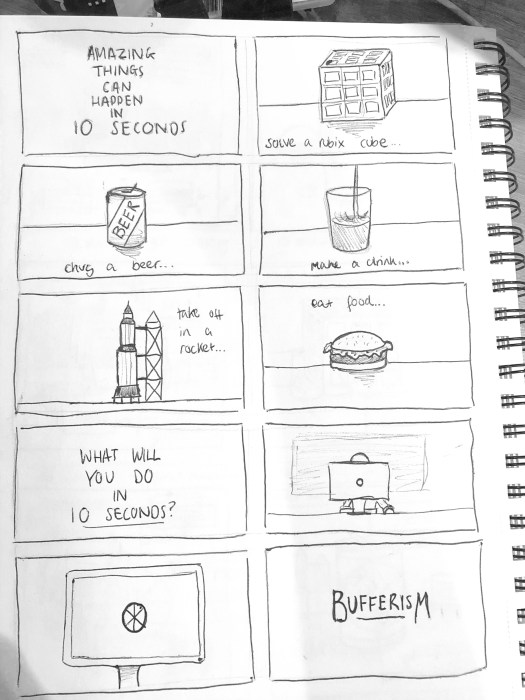 AMAZING
THINGS
CAN
HAPPEN
IN
10 SECONDS
solve a rubix cube...
BEER
chug a beer...
make a drink...
take off
in a
rocket...
eat food...
WHAT WILL
YOU DO
IN
10 SECONDS?
BUFFERISM